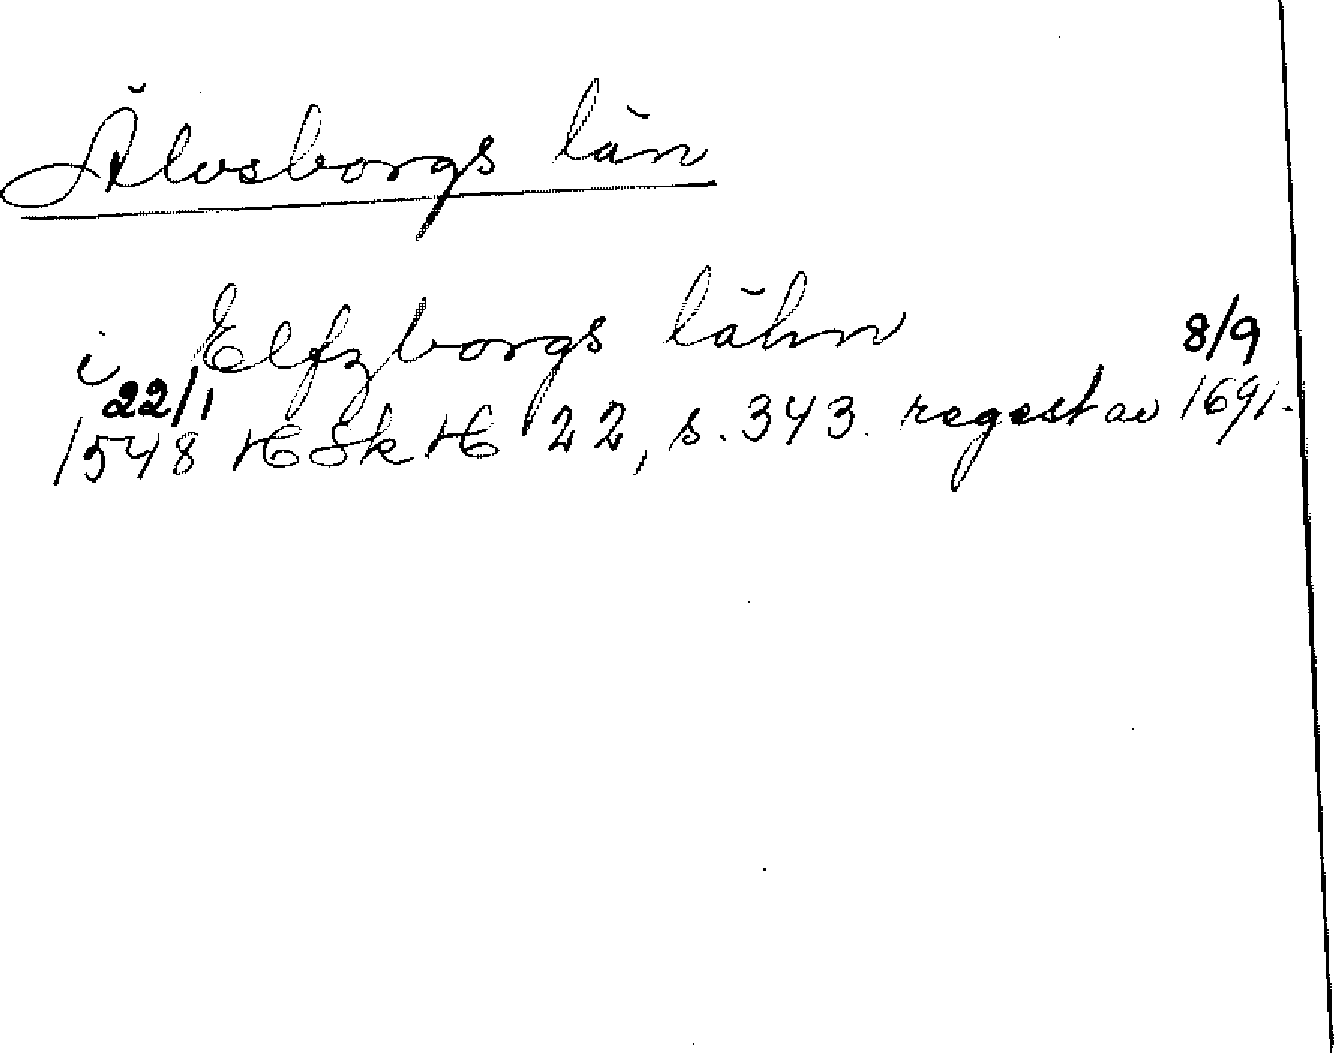 Älvsborgs län
i Elfzborgs lähn
22/1 8/9
1548 HSkH 22, s. 343. regest av 1691.